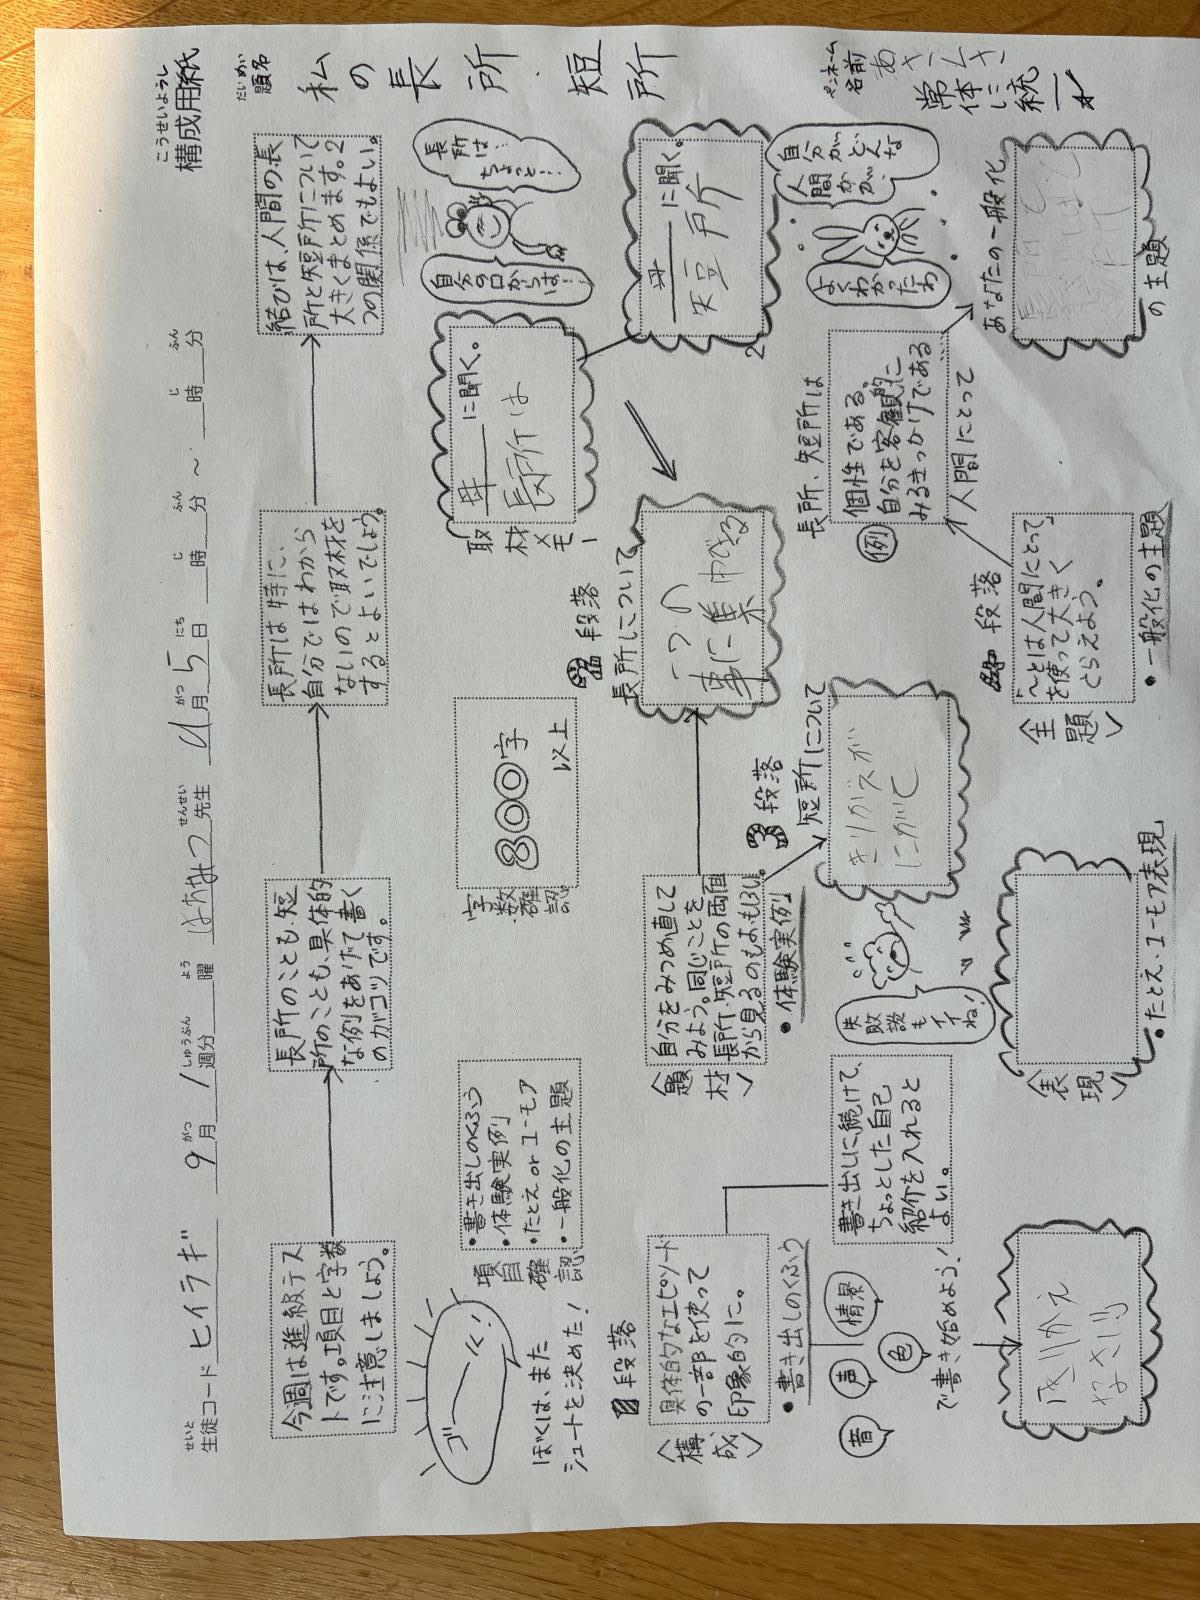 こうせいようし
構成用紙
せいと
生徒コード ヒイラギ 9月 1週分 曜 はなみつ先生 11月5日 時 分 ～ 時 分
がつ しゅうぶん よう せんせい がつ にち じ ふん じ ふん
だいめい
題名
私の長所、短所
ペンネーム
名前
常体に統一
今週は進級テス
トです。項目と字数
に注意しましょう。
長所のことも、短
所のことも、具体的
な例をあげて書く
のがコツです。
長所は特に、
自分ではわから
ないので取材を
するとよいでしょう。
結びは、人間の長
所と短所について
大きくまとめます。2
つの関係でもよい。
ゴーール!
ぼくは、また
シュートを決めた!
項目確認
・書き出しのくふう
・体験実例
・たとえorユーモア
・一般化の主題
字数確認
800字
以上
取材メモー
母に聞く。
長所は
自分の口からは…
長所は…
ちょっと…
母に聞く。
短所
2
段落
〈構成〉
具体的なエピソード
の一部を使って
印象的に。
・書き出しのくふう
書き出しに続けて、
ちょっとした自己
紹介を入れると
よい。
音
声
色
情景
で書き始めよう!
〈題材〉
自分をみつめ直して
みよう。同じことを
長所・短所の両面
から見るのもおもしろい。
・体験実例
失敗談も
イイね!
段落
長所について
一つの
事に集中できる
段落
短所について
きりかえが
にがて
〈表現〉
・たとえ・ユーモア表現
段落
〈主題〉
「～とは人間にとって」
を使って大きく
とらえよう。
・一般化の主題
長所、短所は
例
個性である
自分を客観的に
みるきっかけである…
人間にとって
自分がどんな
人間かが、
よくわかったわ
あなたの一般化
の主題
きりかえ
なさい!